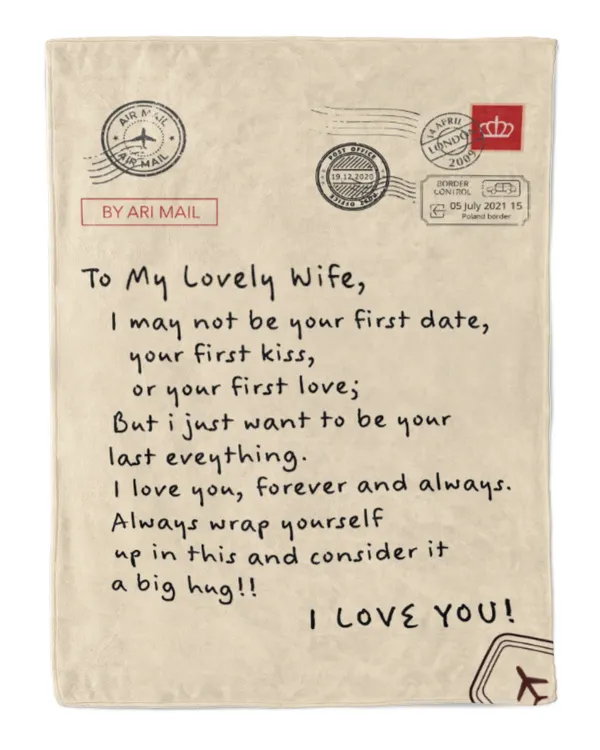 AIR MAIL
AIR MAIL
14 APRIL
LONDON
2009
POST OFFICE
19.12.2020
POST OFFICE
BORDER
CONTROL
05 July 2021 15
Poland border
BY ARI MAIL
To My Lovely Wife,
I may not be your first date,
your first kiss,
or your first love;
But i just want to be your
last eveything.
I love you, forever and always.
Always wrap yourself
up in this and consider it
a big hug!!
I LOVE YOU!